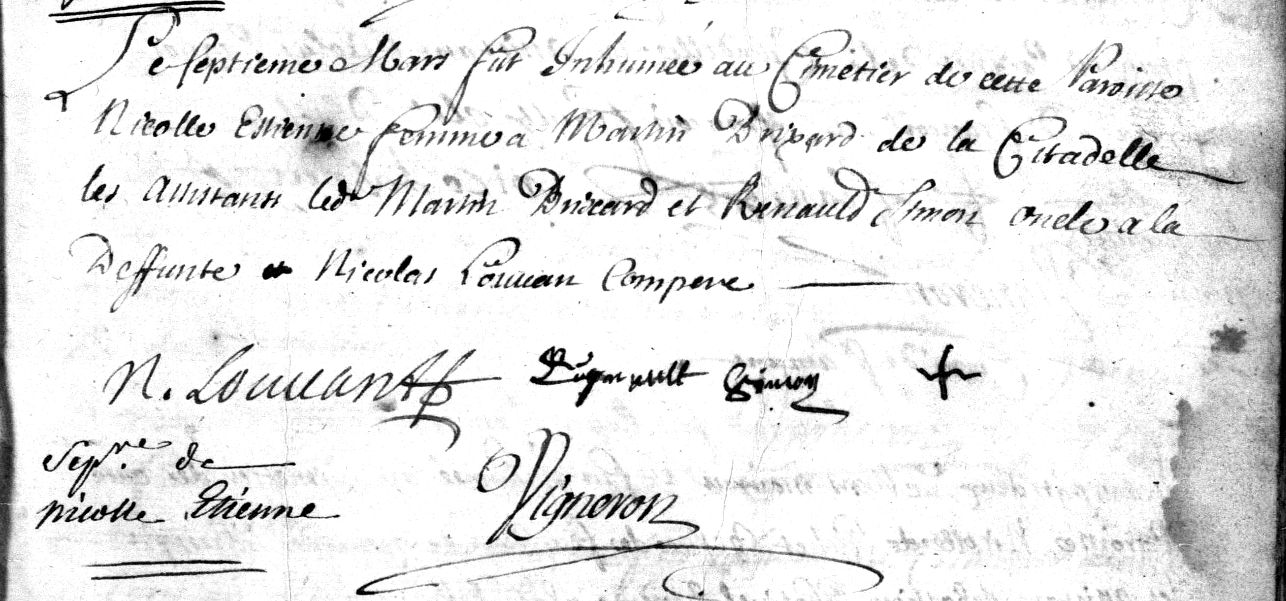 Le septieme Mars fut Inhumée au Cimetier de cette Paroisse
Nicolle Estienne femme a Martin Brixard de la Citadelle
les assistants led Martin Brixard et Renauld Simon oncle a la
Deffunte et Nicolas Louuan Compere
N. Louuant Regnault Simon
Sepre. de
nicolle Etienne
Vigneron